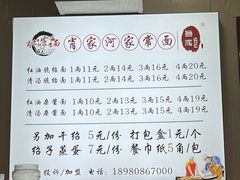 肖家河家常面
红油脆绍面 1两11元 2两14元 3两16元 4两20元
清汤脆绍面 1两11元 2两14元 3两16元 4两20元
红油杂酱面 1两10元 2两13元 3两15元 4两19元
清汤杂酱面 1两10元 2两13元 3两15元 4两19元
另加干绍 5元/份 打包盒1元/个
绍子蒸蛋 7元/份 餐巾纸5角/包
投诉/加盟 电话：18980867000